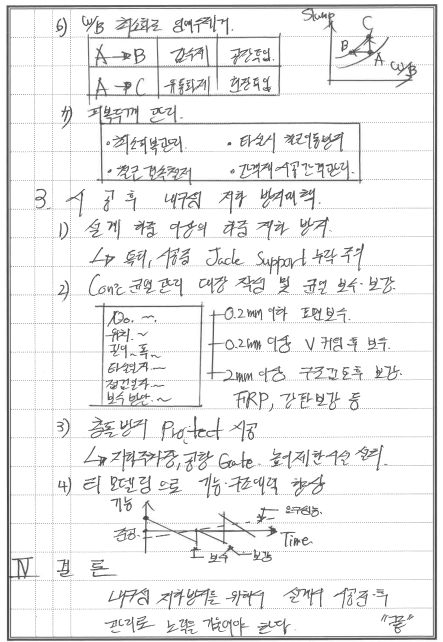 6) W/B 최소화로 염해수축저.
A → B 감수제 공장투입
A → C 유동화제 현장투입.
Slump
C
B
A
W/B
7) 피복두께 관리.
· 최소피복관리 · 타설시 철근이동방지
· 철근 결속철저 · 간격재 시공간격관리.
3. 시공후 내구성 저하 방지대책.
1) 설계 하중 이상의 하중 재하 방지.
↳ 특히, 시공중 Jack Support 누락 주의
2) Conc 균열관리 대장 작성 및 균열 보수·보강
No. ~.
위치. ~
길이~ 폭~
타설일자~
점검일자~
보수 방안.~
0.2mm 이하 표면보수.
0.2mm 이상 V 커팅 후 보수.
2mm 이상 구조검토후 보강.
FRP, 강판보강 등
3) 충돌방지 Protect 시공
↳ 지하주차장, 공항 Gate. 높이제한시설 설치.
4) 티 모델링으로 기능·구조내력 향상
기능
준공
요구성능
Time.
보수
보강
Ⅳ 결론
내구성 저하방지를 위하여 설계시 시공중·후
관리로 노력을 기울여야 한다. "끝"